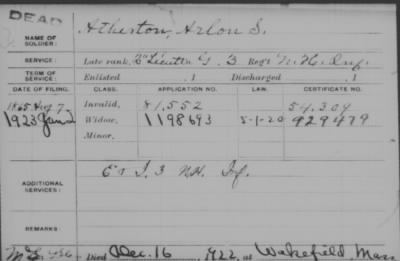 DEAD
NAME OF SOLDIER: Atherton, Arlon S.
SERVICE: Late rank, 2d Lieut. G. 3 Reg't N.H. Inf.
TERM OF SERVICE: Enlisted , 1 Discharged , 1
DATE OF FILING. CLASS. APPLICATION NO. LAW. CERTIFICATE NO.
1865 Aug 7 Invalid, 81,552 54,304
1923 Jan 2 Widow, 1198693 5-1-20 929479
Minor,
ADDITIONAL SERVICES: E & I, 3 N.H. Inf.
REMARKS:
Died Dec. 16, 1922, at Wakefield, Mass